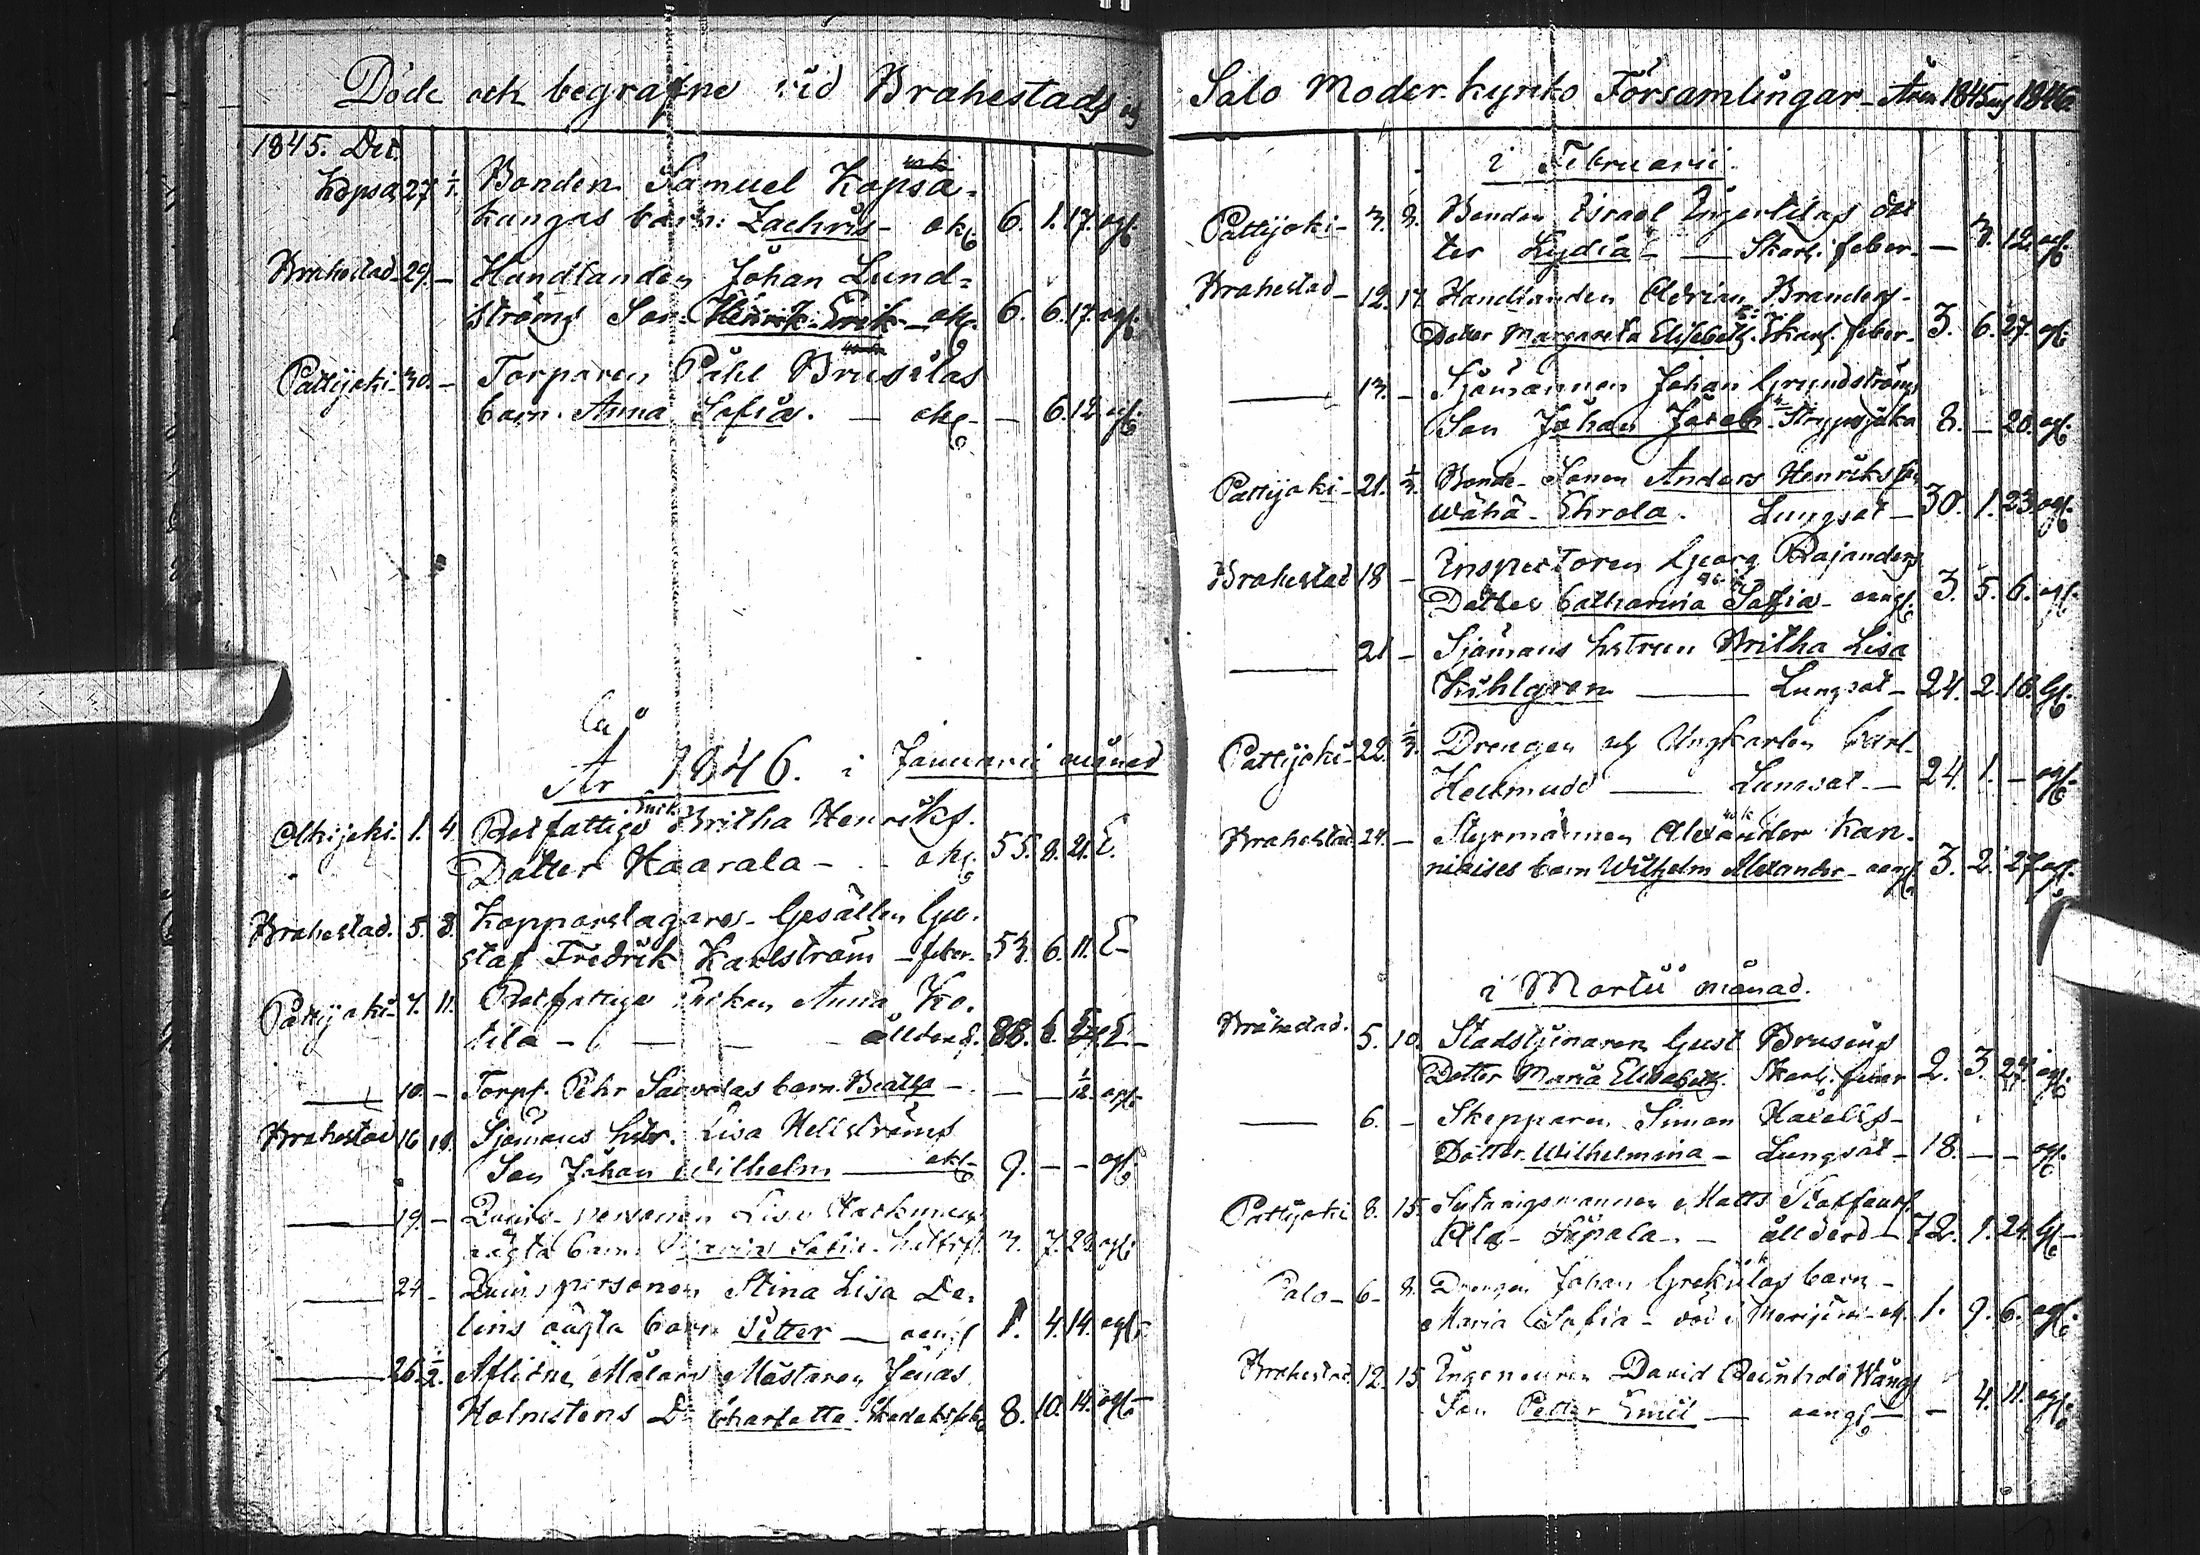 Döde och begrafne vid Brahestads och
1845. Dec.
Kopsa 27. 1/1. Bonden Samuel Kopsa-
kangas barn: Zachris - okl. 6. 1. 17. ogf.
Brahestad 29. - Handlanden Johan Lund-
ströms Son Henrik Erik - okl. 6. 6. 17. ogf.
Pattijoki 30. - Torparen Påhl Brusilas
barn Anna Sofia. - okl. - 6. 12 ogf.
År 1846. i Januarii månad
Olkijoki. 1. 4. Rotfattige Britha Henriksd.
Dotter Haarala - okl. 55. 8. 21. E.
Brahestad. 5. 8. Kopparslagare-Gesällen Gu-
staf Fredrik Karlström - feber. 53. 6. 11. E-
Pattijoki 7. 11. Rotfattige Enkan Anna Ko-
tila - - - ålderd. 88. 6. E-
10. - Torp. Pehr Savolas barn Beatha - - - 1/12 ogf.
Brahestad 16 18. Sjömans hstr. Lisa Hellströms
Son Johan Wilhelm - okl. 9. - - ogf.
19. - Quins-personen Lisa
oägta barn Maria Sofia. 3. 7. 23. ogf.
24. - Quinspersonen Stina Lisa De-
lins oägta barn Petter - aangf. 1. 4. 14. ogf.
26. 1/2. Aflidne Målare Mästaren Jonas
Holmstens Dr Charlotta. 8. 10. 14. ogf.
Salo Moder-kyrko Församlingar - Åren 1845 och 1846
i Februarii.
Pattijoki - 3. 8. Bonden Israel Ingertilas dot
ter Lydia - Skarl. feber - - 3. 12. ogf.
Brahestad - 12. 17. Handlanden Adrian Branders
Dotter Margareta Elisabeth. Skarl. feber - 3. 6. 27. ogf.
13. - Sjömannen Johan Grundströms
Son Johan Jacob. Strypsjuka 8. - 20. ogf.
Pattijoki - 21. 1/3. Bonde-Sonen Anders Henriksson
Wähä-Ehrola. Lungsot - 30. 1. 23. ogf.
Brahestad 18 - Inspectoren Georg Rajanders
Dotter Catharina Sofia - aangf. 3. 5. 6. ogf.
21 - Sjömans hstrun Britha Lisa
Kuhlgren - Lungsot - 24. 2. 16. Gf.
Pattijoki - 22. 1/3. Drengen och Ungkarlen Carl
Heckmudd - Lungsot. - 24. 1. - ogf.
Brahestad 24. - Styrmannen Alexander Kan-
niaises barn Wilhelm Alexander - aangf. 3. 2. 27. ogf.
i Martii månad.
Brahestad. 5. 10. Stadstjenaren Gust. Brusens
Dotter Maria Elisabeth. Skarl. feber 2. 3. 24. ogf.
6. - Skepparen Simon Havells
Dotter Wilhelmina - Lungsot - 18. - - ogf.
Pattijoki 8. 15. Sytningsmannen Matts
Ala-Sipola - - ålderd - 72. 1. 24. Gf. -
Palo - 6 - 8. Drengen Johan Grekulas barn -
Maria Sofia - död i Merijärvi - 1. 9. 6. ogf.
Brahestad 12. 15. Ingenieuren David Reinhold Wångs
Son Petter Emil - aangf. - 4. 11. ogf.